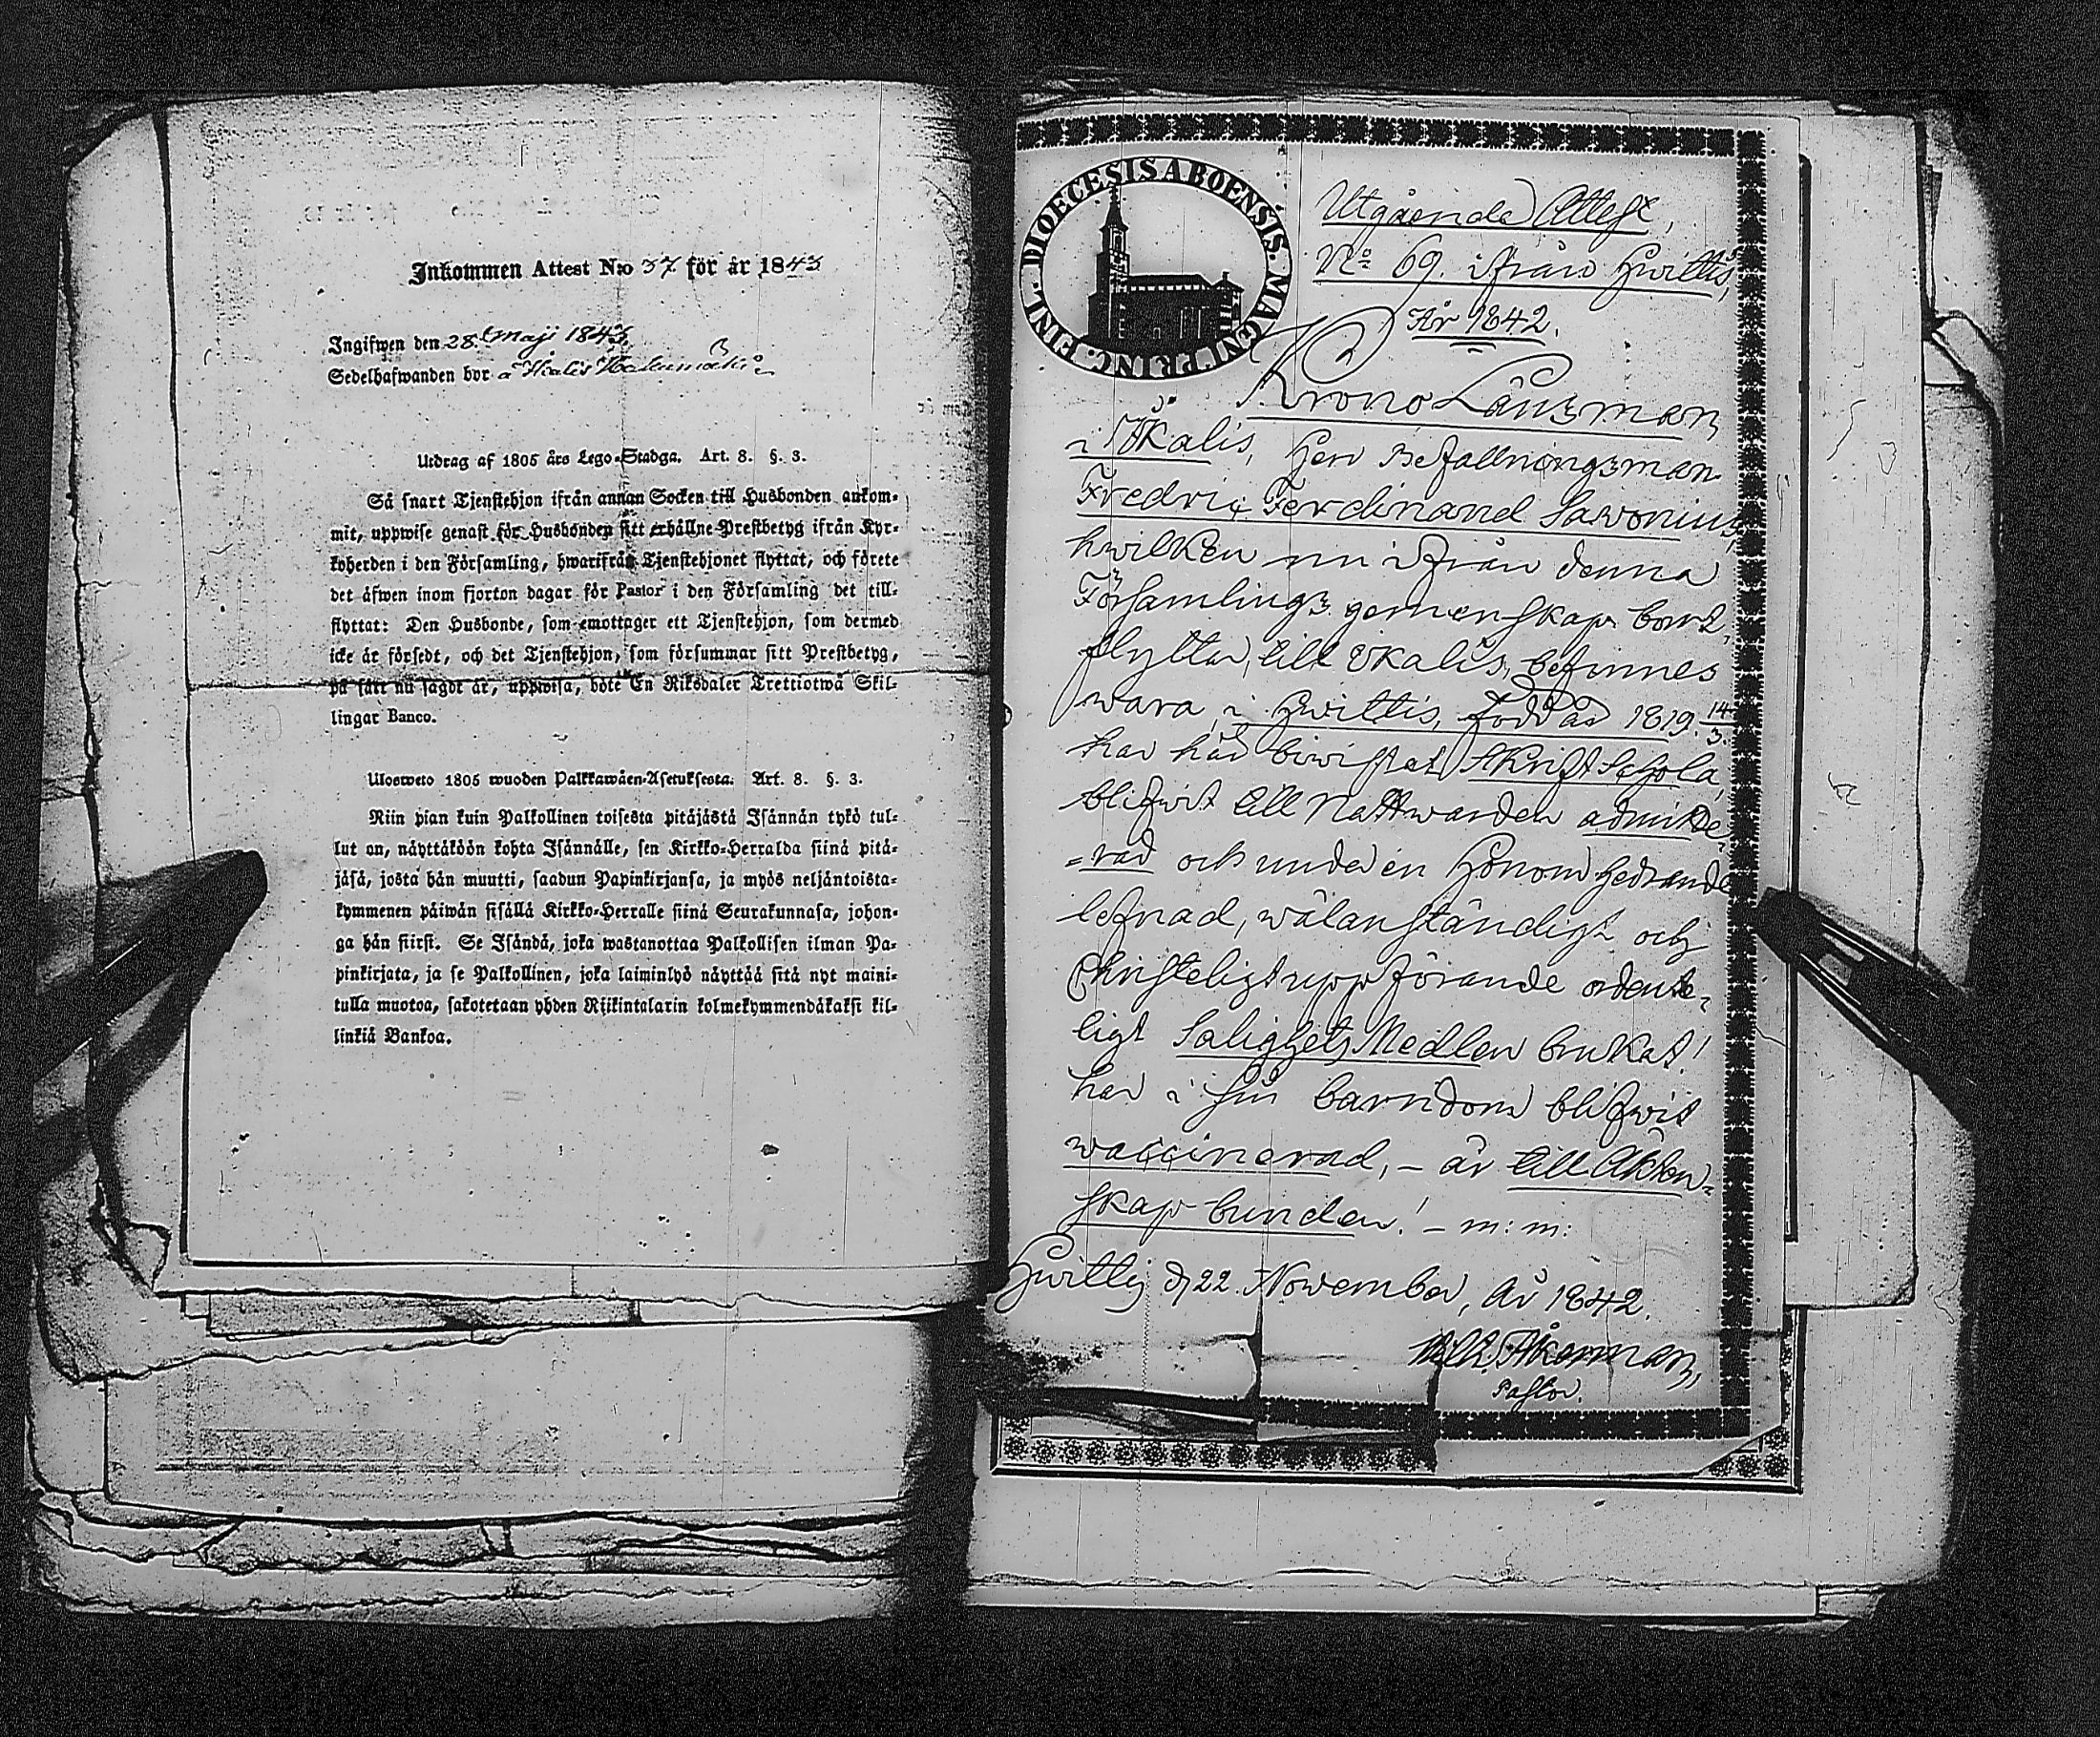 Inkommen Attest N:o 37 för år 1843
Ingifwen den 28 Maji 1843
Sedelhafwanden bor å Ikalis
Utdrag af 1805 års Lego-Stadga. Art. 8. §. 3.
Så snart Tjenstehjon ifrån annan Socken till Husbonden ankom-
mit, uppwise genast för Husbonden sitt erhållne Prestbetyg ifrån Kyr-
koherden i den Församling, hwarifrån Tjenstehjonet flyttat, och förete
det äfwen inom fjorton dagar för Pastor i den Församling det till-
flyttat: Den Husbonde, som emottager ett Tjenstehjon, som dermed
icke är försedt, och det Tjenstehjon, som försummar sitt Prestbetyg,
på sätt nu sagdt är, uppwisa, böte En Riksdaler Trettiotwå Skil-
lingar Banco.
Ulosweto 1805 wuoden Palkkawäen-Asetuksesta. Art. 8. §. 3.
Niin pian kuin Palkollinen toisesta pitäjästä Isännän tykö tul-
lut on, näyttäköön kohta Isännälle, sen Kirkko-Herralda siinä pitä-
jäsä, josta hän muutti, saadun Papinkirjansa, ja myös neljäntoista-
kymmenen päiwän sisällä Kirkko-Herralle siinä Seurakunnasa, johon-
ga hän siirst. Se Isändä, joka wastanottaa Palkollisen ilman Pa-
pinkirjata, ja se Palkollinen, joka laiminlyö näyttää sitä nyt maini-
tulla muotoa, sakotetaan yhden Riikintalarin kolmekymmendäkaksi kil-
linkiä Bankoa.
DIOECESIS ABOENSIS. MAGNI PRINC. FINL.
Utgående Attest,
No 69. ifrån Hwittis,
År 1842.
Krono Länsman
i Ikalis, Herr Befallningsman
Fredric Ferdinand Savonius,
hwilken nu ifrån denna
Församlings gemenskap bort
flyttar, till Ikalis, befinnes
wara, i Hwittis, född år 1819. 14/3.
har här biwistat Skrift Schola,
blifwit till Nattwarden admitte-
-rad och under en Honom hedrande
lefnad, wälanständigt och
Christeligt uppförande ordente-
ligt Salighets Medlen brukat!
har i sin barndom blifwit
waccinerad, – är till Äkten-
skap bunden! – m: m:
Hwittis d. 22. November, År 1842.
Wilh. Åkerman,
Pastor.